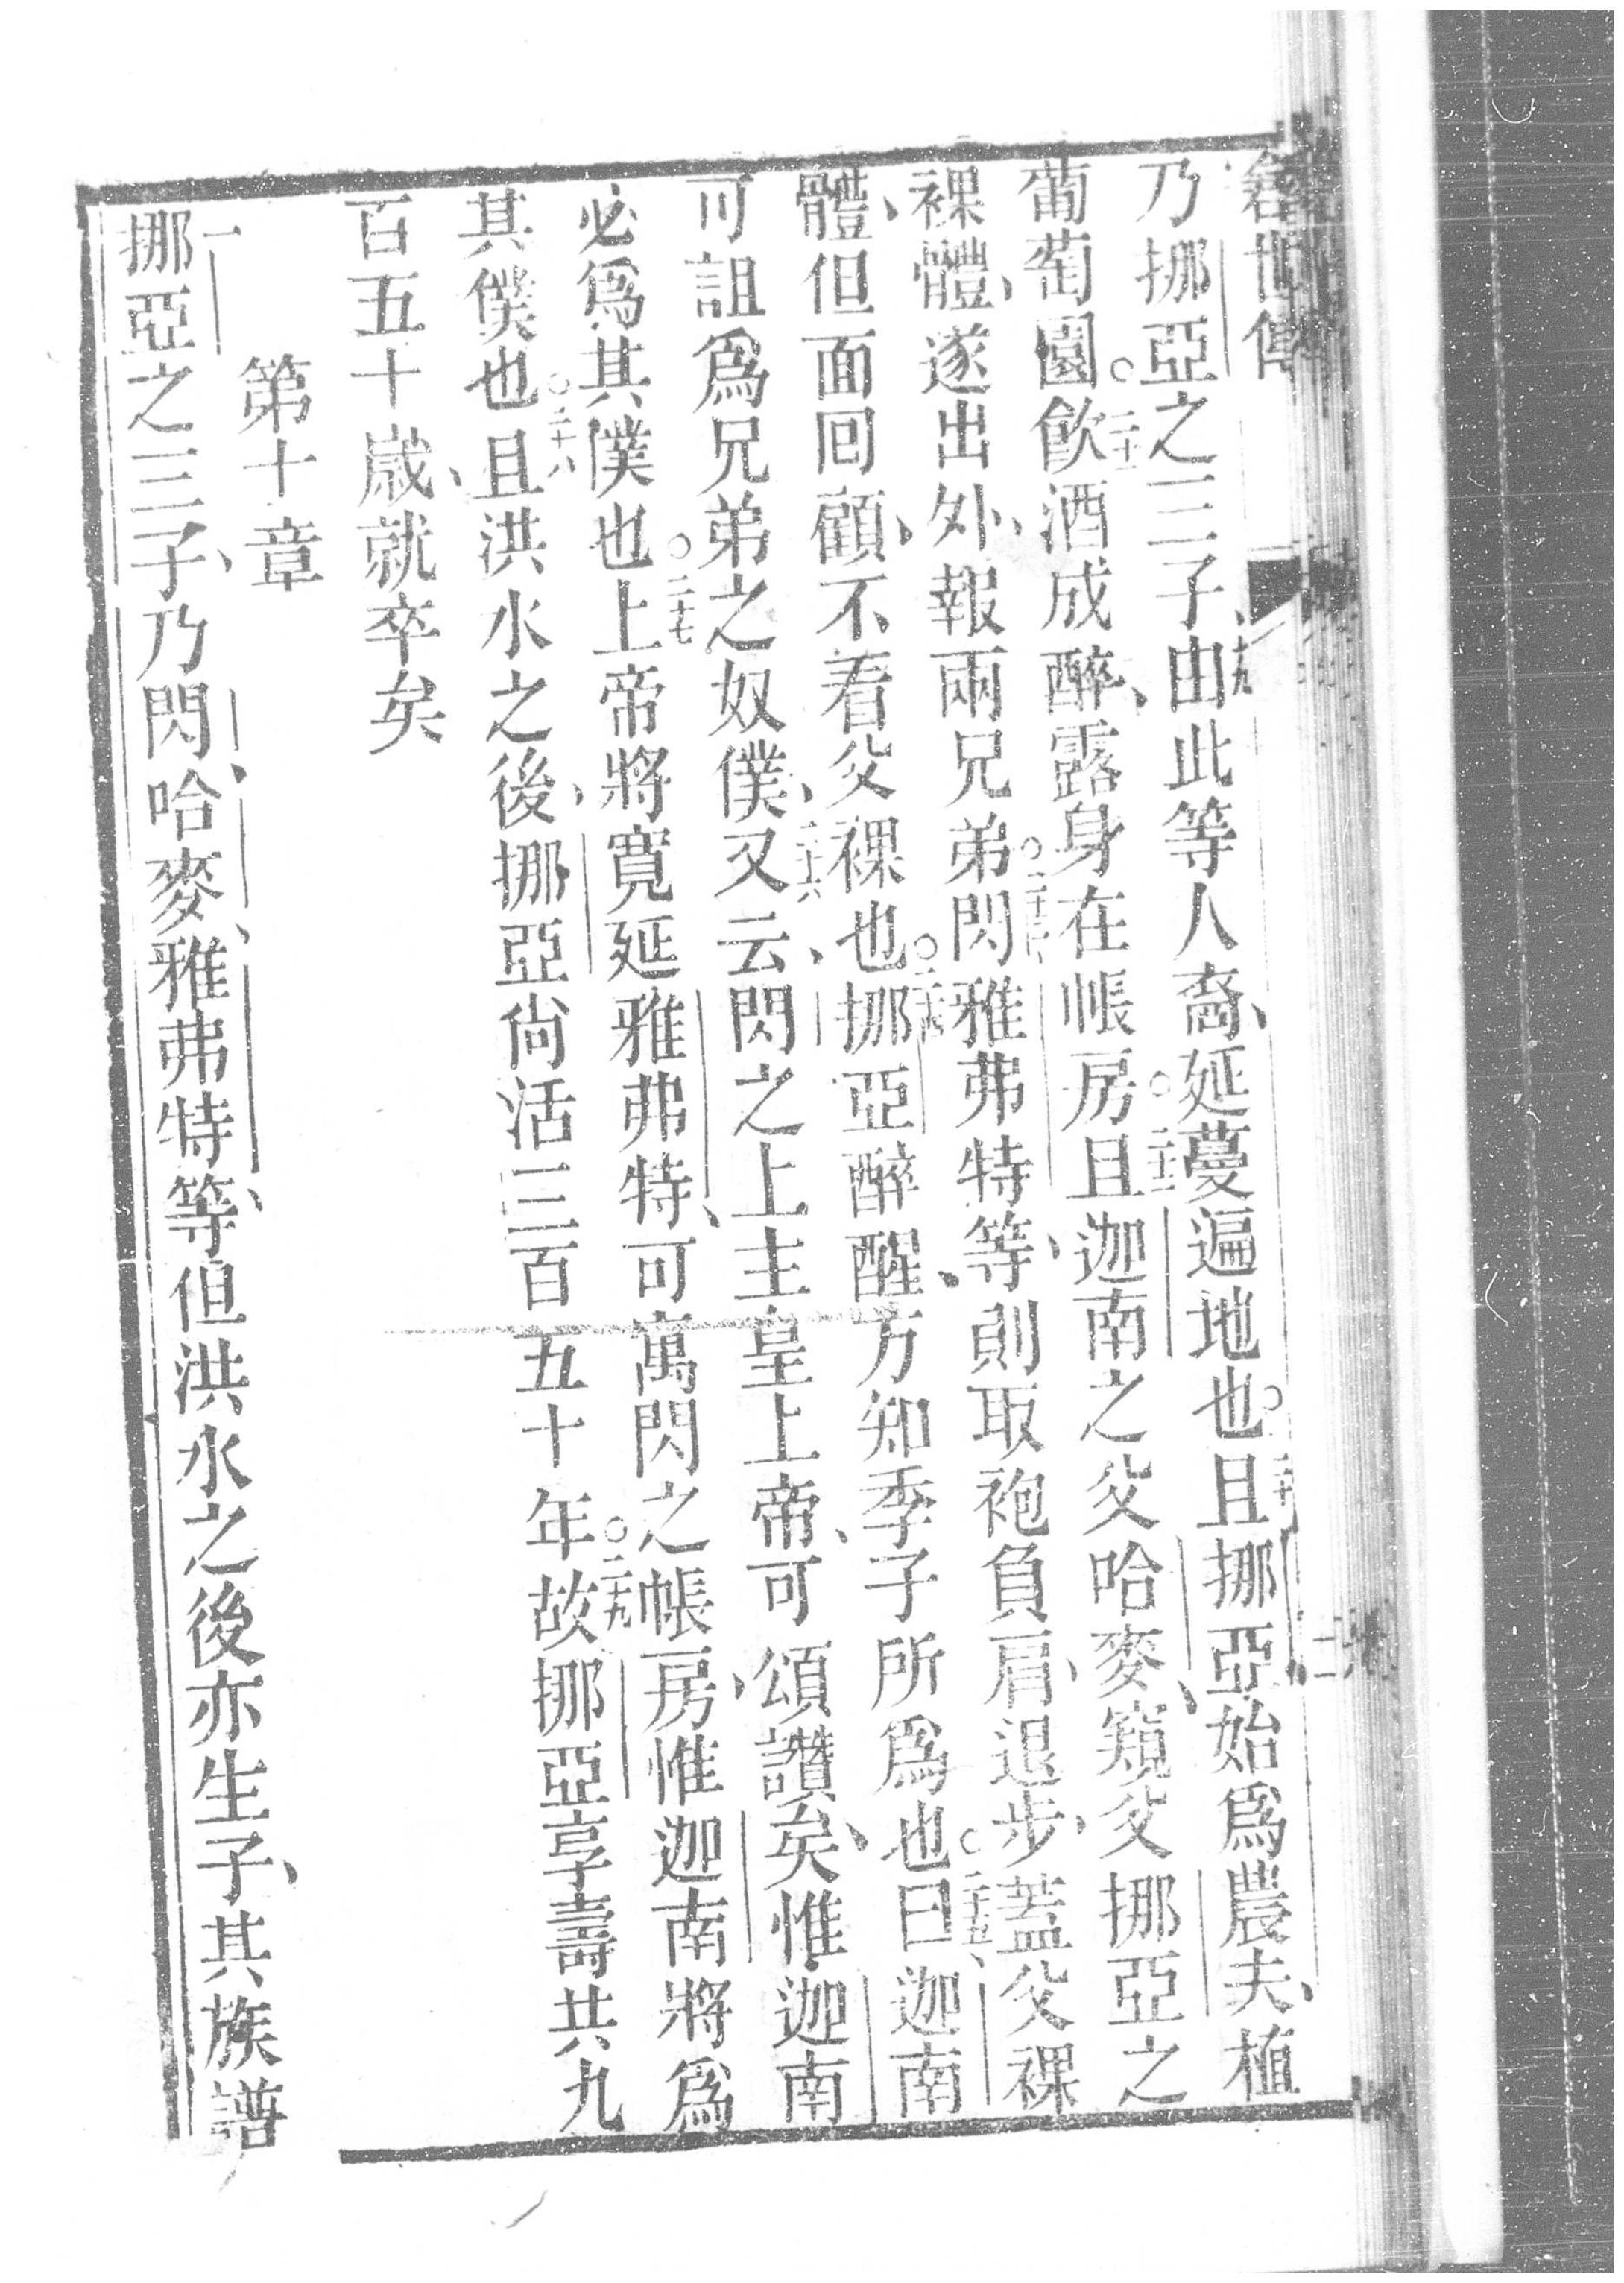 乃挪亞之三子、十九由此等人裔、延蔓遍地也○二十且挪亞始爲農夫、植
葡萄園○二十一飲酒成醉、露身在帳房○二十二且迦南之父哈麥、窺父挪亞之
裸體、遂出外、報兩兄弟○二十三閃雅弗特等、則取袍負肩、退步、蓋父裸
體、但面回顧、不看父裸也○二十四挪亞醉醒、方知季子所爲也○二十五曰、迦南
可詛爲兄弟之奴僕、二十六又云、閃之上主皇上帝、可頌讚矣、惟迦南
必爲其僕也○二十七上帝將寬延雅弗特、可寓閃之帳房、惟迦南將爲
其僕也○二十八且洪水之後、挪亞尙活三百五十年○二十九故挪亞享壽共九
百五十歲、就卒矣
第十章
一挪亞之三子、乃閃、哈麥、雅弗特等、但洪水之後亦生子、其族譜